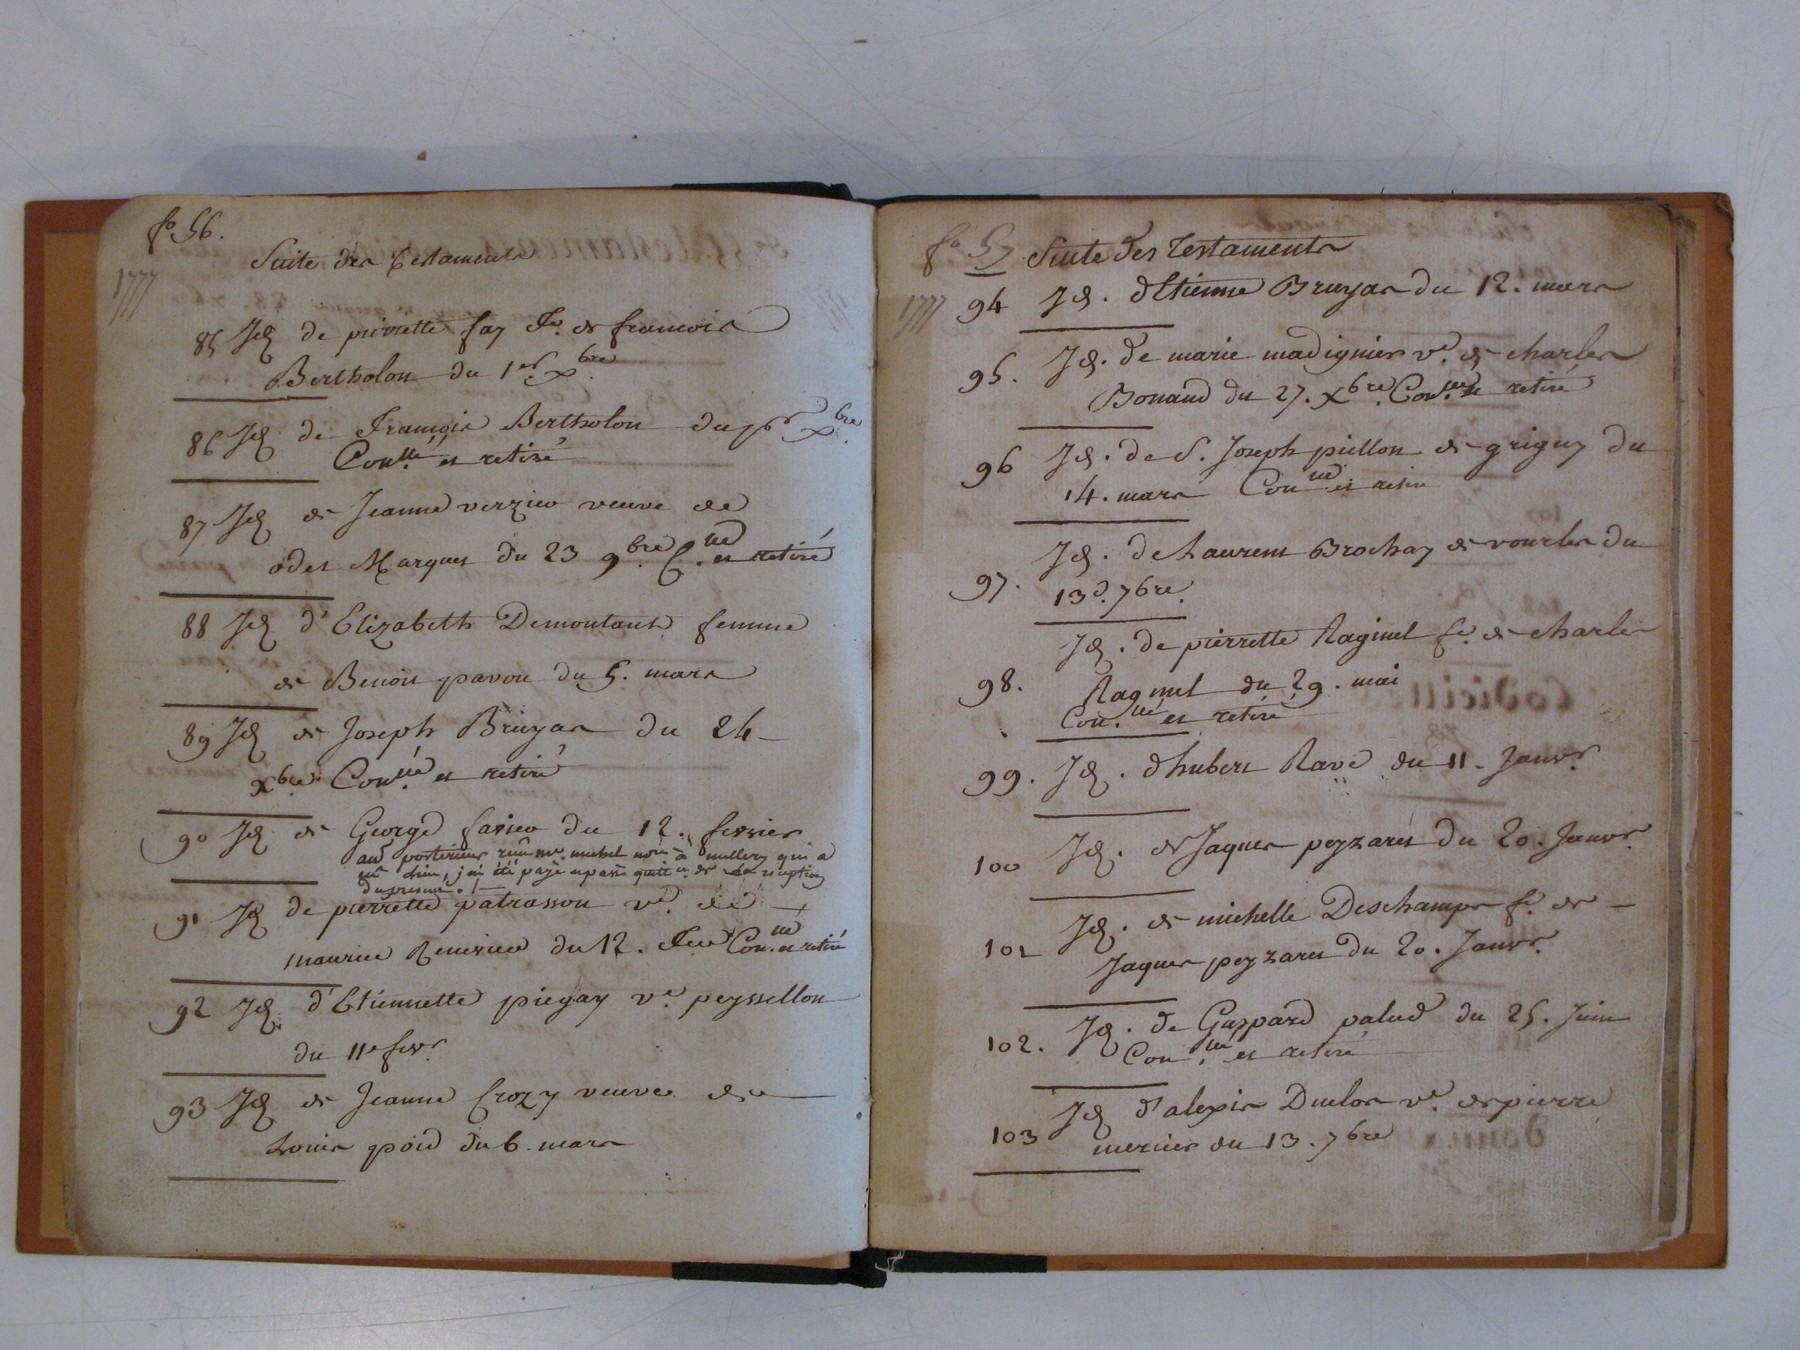 fo 56.
Suite des testaments
1777
85 Id de pierrette fay fe. de francois
Bertholon du 1er xbre
86 Id de François Bertholon du 1er xbre
Conllé et retiré
87 Id de Jeanne verzieu veuve de
odet Marques du 23 9bre C.né et retiré
88 Id d'Elizabeth Demontant femme
de Benoit pavou du 5. mars
89 Id de Joseph Bruyas du 24
xbre Con.llé et retiré
90 Id de George favieu du 12. fevrier
posterieur michel à millery qui a
j'ai été payé
91 Id de pierrette patrasson ve. de
maurice du 12. Con.né et retiré
92 Id d'Etiennette piegay ve. peyssellon
du 11e fevr.
93 Id de Jeanne Crozy veuve de
Louis poid du 6. mars
fo 57 Suite des Testaments
1777
94 Id. d'Etienne Bruyas du 12. mars
95. Id. de marie madignier ve. de charles
Bonand du 27. xbre. Con.né et retiré
96 Id. de S. Joseph pillon de grigny du
14. mars Conné et retiré
97. Id. de Laurent Brochay de vourles du
13d. 7bre.
98. Id. de pierrette Raginel fe. de charles
Raginel du 29. mai
Con.llé et retiré
99. Id. d'hubert Rave du 11. Janvr.
100 Id. de Jaques peyzaret du 20. Janvr.
101 Id. de michelle Deschamps fe. de
Jaques peyzaret du 20. Janvr.
102. Id. de Gaspard palud du 25. Juin
Con.llé et retiré
103 Id d'alexis Duclos ve. de pierre
mercier du 13. 7bre